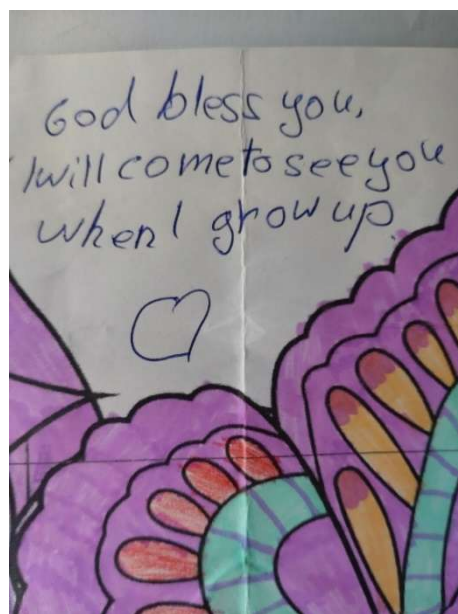 God bless you,
I will come to see you
when I grow up.